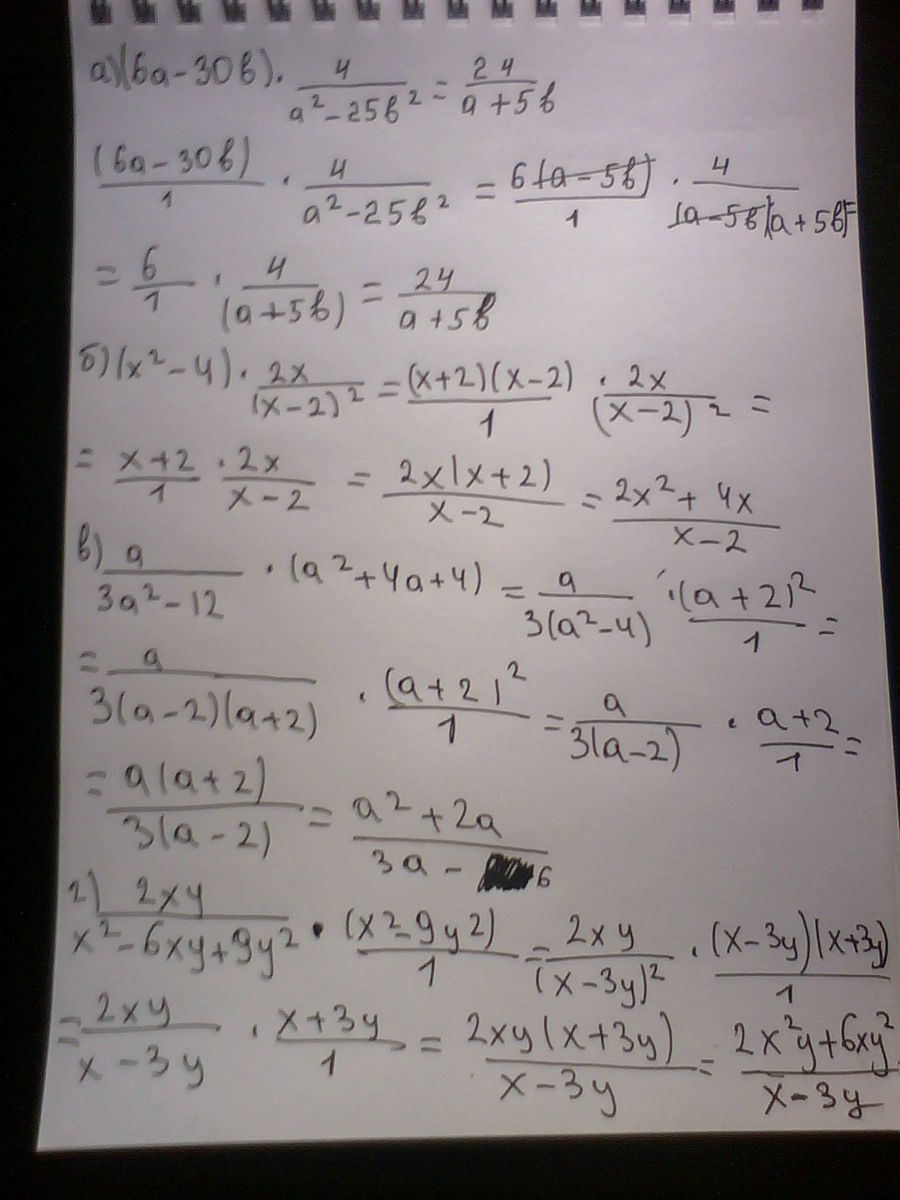 а)(6a-30b)· 4/(a²-25b²) = 24/(a+5b)
(6a-30b)/1 · 4/(a²-25b²) = 6(a-5b)/1 · 4/((a-5b)(a+5b)) =
= 6/1 · 4/(a+5b) = 24/(a+5b)
б)(x²-4)· 2x/(x-2)² = (x+2)(x-2)/1 · 2x/(x-2)² =
= (x+2)/1 · 2x/(x-2) = 2x(x+2)/(x-2) = (2x²+4x)/(x-2)
в) a/(3a²-12) · (a²+4a+4) = a/(3(a²-4)) · (a+2)²/1 =
= a/(3(a-2)(a+2)) · (a+2)²/1 = a/(3(a-2)) · (a+2)/1 =
= a(a+2)/(3(a-2)) = (a²+2a)/(3a-6)
г) 2xy/(x²-6xy+9y²) · (x²-9y²)/1 = 2xy/(x-3y)² · (x-3y)(x+3y)/1
= 2xy/(x-3y) · (x+3y)/1 = 2xy(x+3y)/(x-3y) = (2x²y+6xy²)/(x-3y)